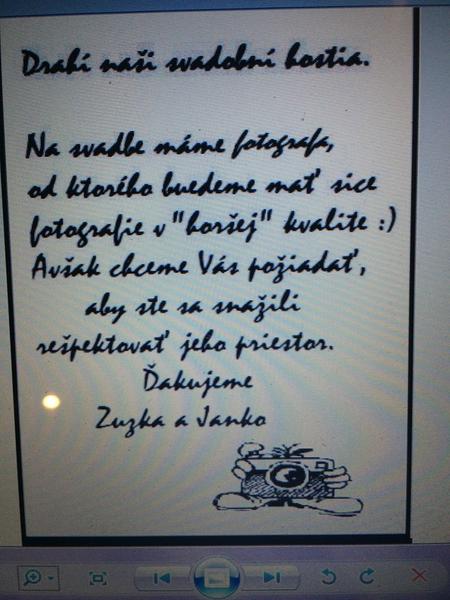 Drahí naši svadobní hostia.
Na svadbe máme fotografa,
od ktorého buedeme mať sice
fotografie v "horšej" kvalite :)
Avšak chceme Vás požiadať,
aby ste sa snažili
rešpektovať jeho priestor.
Ďakujeme
Zuzka a Janko